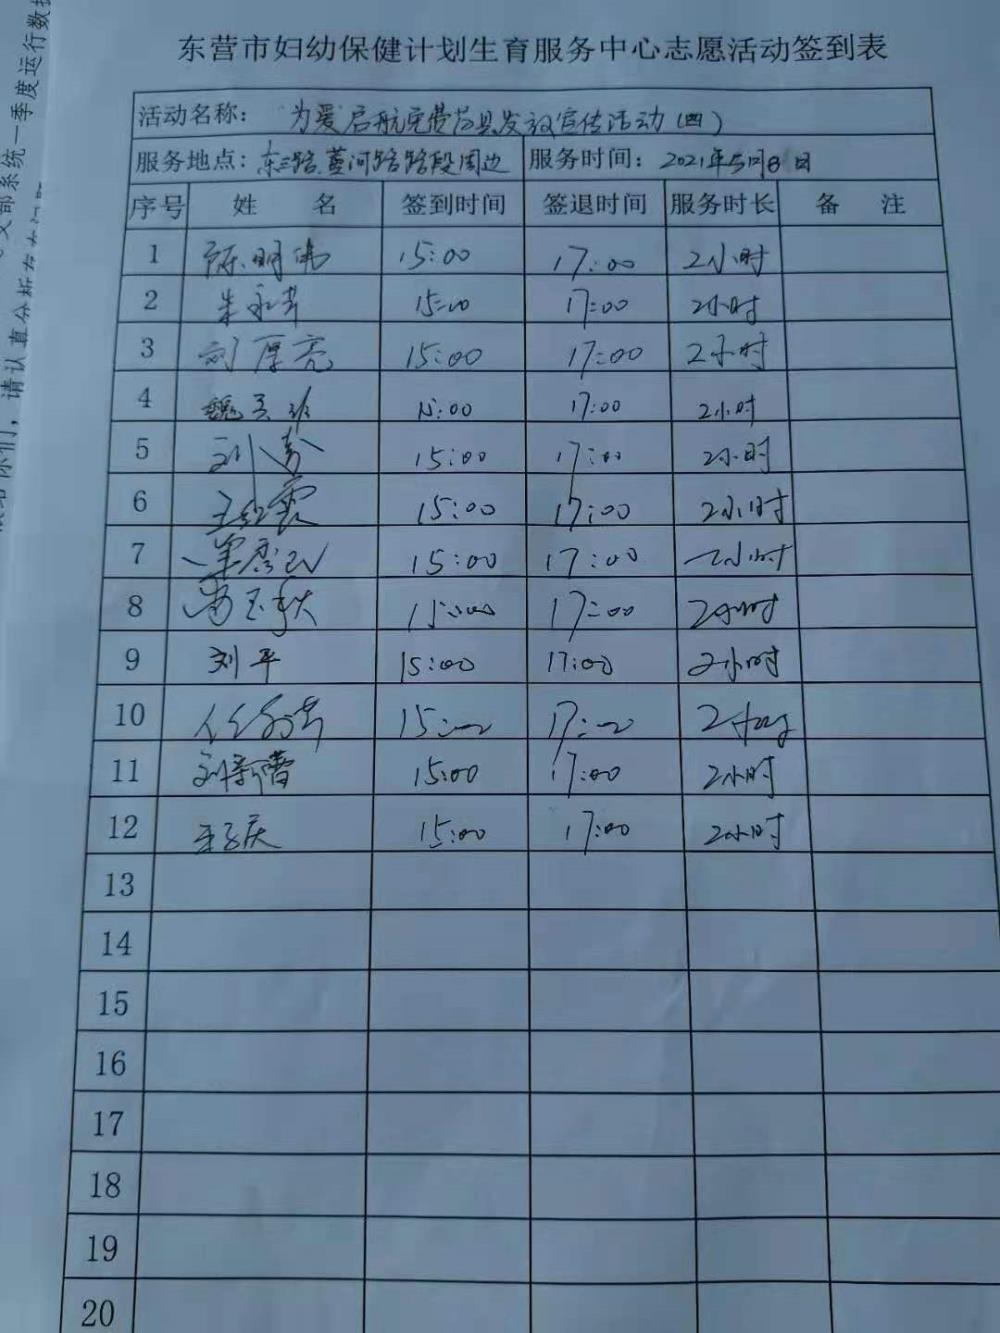 东营市妇幼保健计划生育服务中心志愿活动签到表
活动名称: 为爱启航免费药具发放宣传活动(四)
服务地点: 东三路黄河路路段周边 服务时间: 2021年5月8日
序号 姓 名 签到时间 签退时间 服务时长 备 注
1 陈明伟 15:00 17:00 2小时
2 15:00 17:00 2小时
3 刘厚亮 15:00 17:00 2小时
4 魏 15:00 17:00 2小时
5 刘 15:00 17:00 2小时
6 王红霞 15:00 17:00 2小时
7 15:00 17:00 2小时
8 15:00 17:00 2小时
9 刘平 15:00 17:00 2小时
10 任 15:00 17:00 2小时
11 刘新蕾 15:00 17:00 2小时
12 庆 15:00 17:00 2小时
13
14
15
16
17
18
19
20
支部系统一季度运行数据
你们,请认真分析